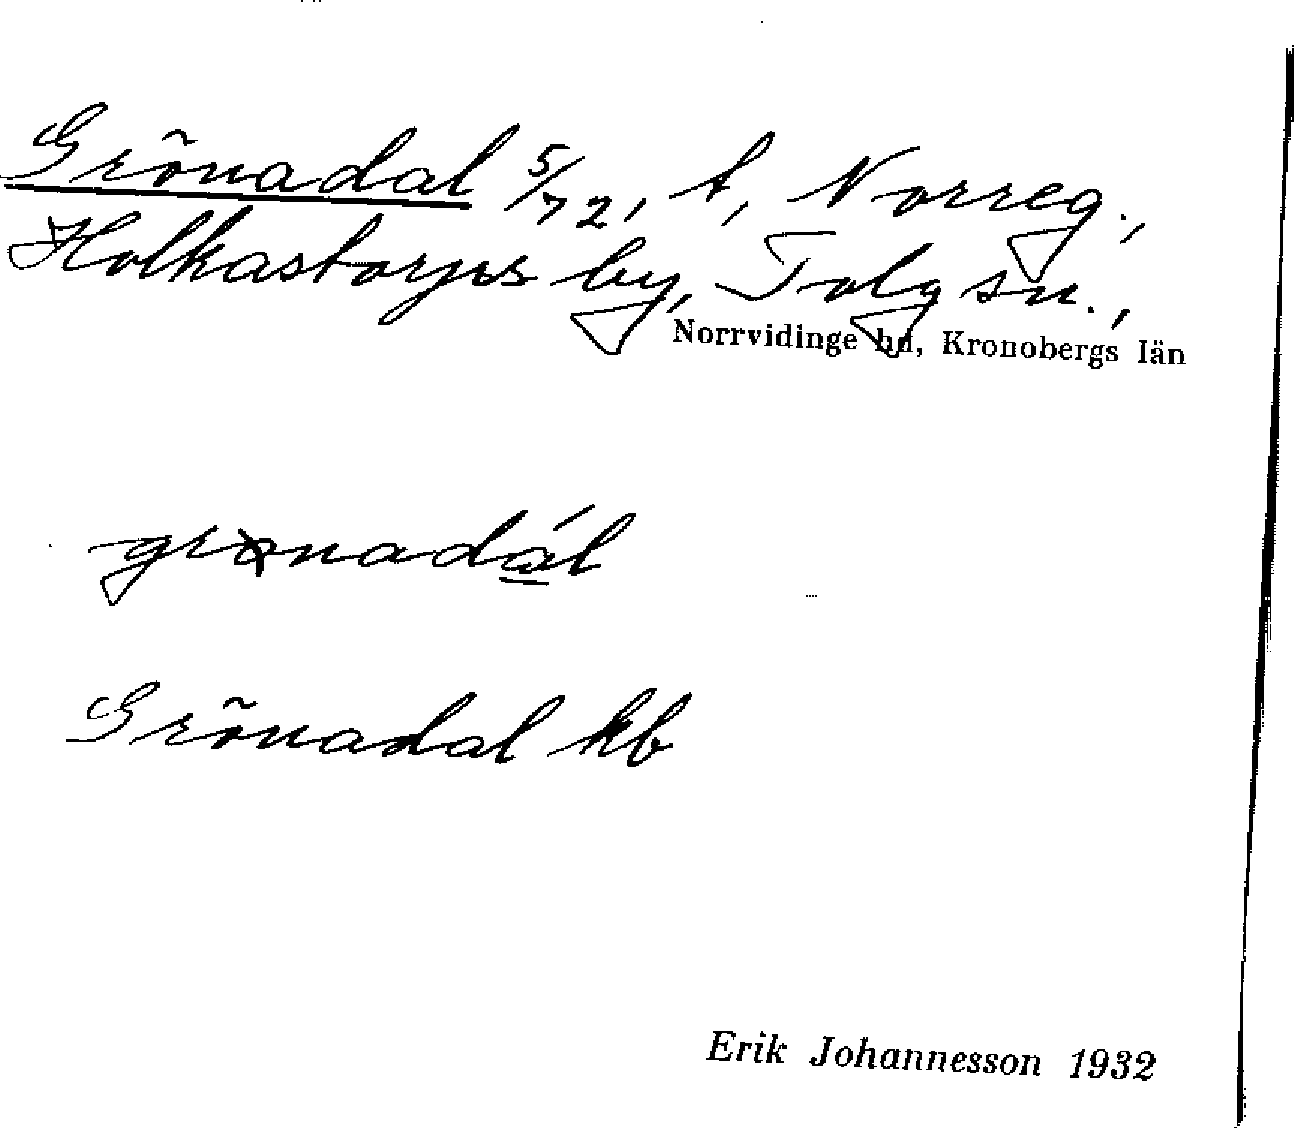 Grönadal 5/72, t, Norreg.,
Holkastorps by, Tolg sn.,
Norrvidinge hd, Kronobergs län
grönadál
Grönadal kb
Erik Johannesson 1932